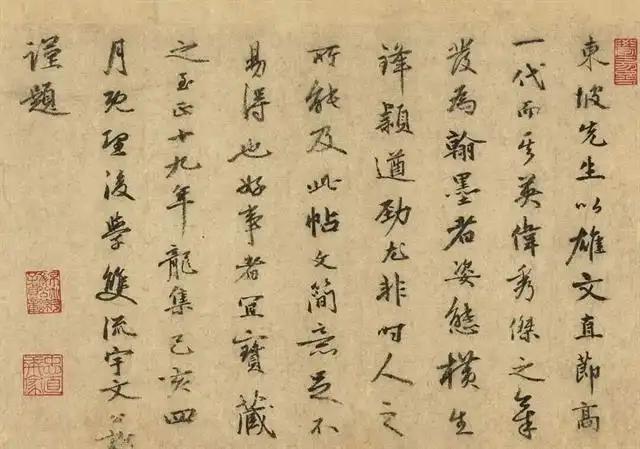 東坡先生以雄文直節高
一代而其英偉秀傑之氣
發為翰墨者姿態橫生
鋒穎遒勁尤非時人之
所能及此帖文簡意足不
易得也好事者宜寶藏
之至正十九年龍集己亥四
月既望後學雙流宇文公
謹題